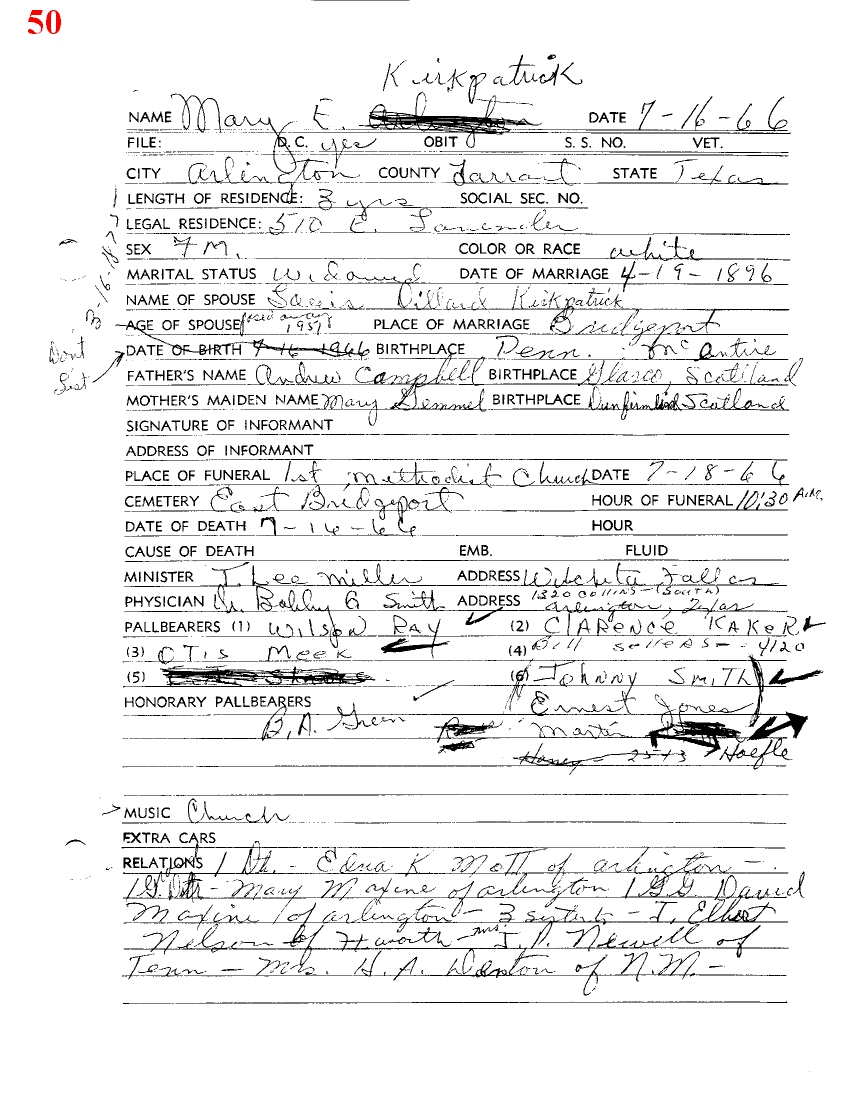 50
Kirkpatrick
NAME Mary E. DATE 7-16-66
FILE: D.C. yes OBIT S. S. NO. VET.
CITY Arlington COUNTY Tarrant STATE Texas
LENGTH OF RESIDENCE: 3 yrs SOCIAL SEC. NO.
LEGAL RESIDENCE: 510 E. Lavender
SEX F M. COLOR OR RACE white
MARITAL STATUS Widowed DATE OF MARRIAGE 4-19-1896
NAME OF SPOUSE Dillard Kirkpatrick
AGE OF SPOUSE passed away 1957 PLACE OF MARRIAGE Bridgeport
Dont List
DATE OF BIRTH 7-16-1966 BIRTHPLACE Penn. : McAntire
FATHER'S NAME Andrew Campbell BIRTHPLACE Glasco, Scotland
MOTHER'S MAIDEN NAME Mary Gemmel BIRTHPLACE Dunfirmland Scotland
SIGNATURE OF INFORMANT
ADDRESS OF INFORMANT
PLACE OF FUNERAL 1st Methodist Church DATE 7-18-66
CEMETERY East Bridgeport HOUR OF FUNERAL 10:30 A.M.
DATE OF DEATH 7-16-66 HOUR
CAUSE OF DEATH EMB. FLUID
MINISTER J. Lee Miller ADDRESS Wichita Falls
PHYSICIAN Dr. Bobby G Smith ADDRESS 1320 COLLINS-(SOUTH) Arlington, Texas
PALLBEARERS (1) Wilson Ray (2) CLARENCE KAKER
(3) OTIS MEEK (4) Bill Sellers - 4120
(5) (6) JOHNNY SMITH
HONORARY PALLBEARERS Ernest Jones
B.A. Green Martin
2543 Hoefle
MUSIC Church
EXTRA CARS
RELATIONS 1 Dt. - Edna K Mott of Arlington -
1 G. Dtr - Mary Maxine of Arlington 1 GG David
Maxine of Arlington - 3 sisters - J. Elbert
Nelson of Haworth - Mrs. J.D. Newell of
Tenn - Mrs. H. A. Denton of N.M. -